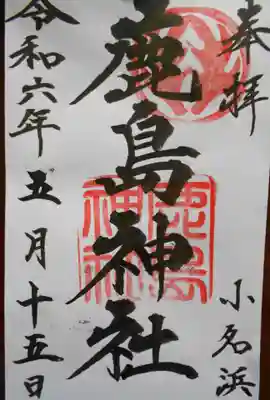 奉拝
小名浜
鹿島神社
鹿島
神社
令和六年五月十五日